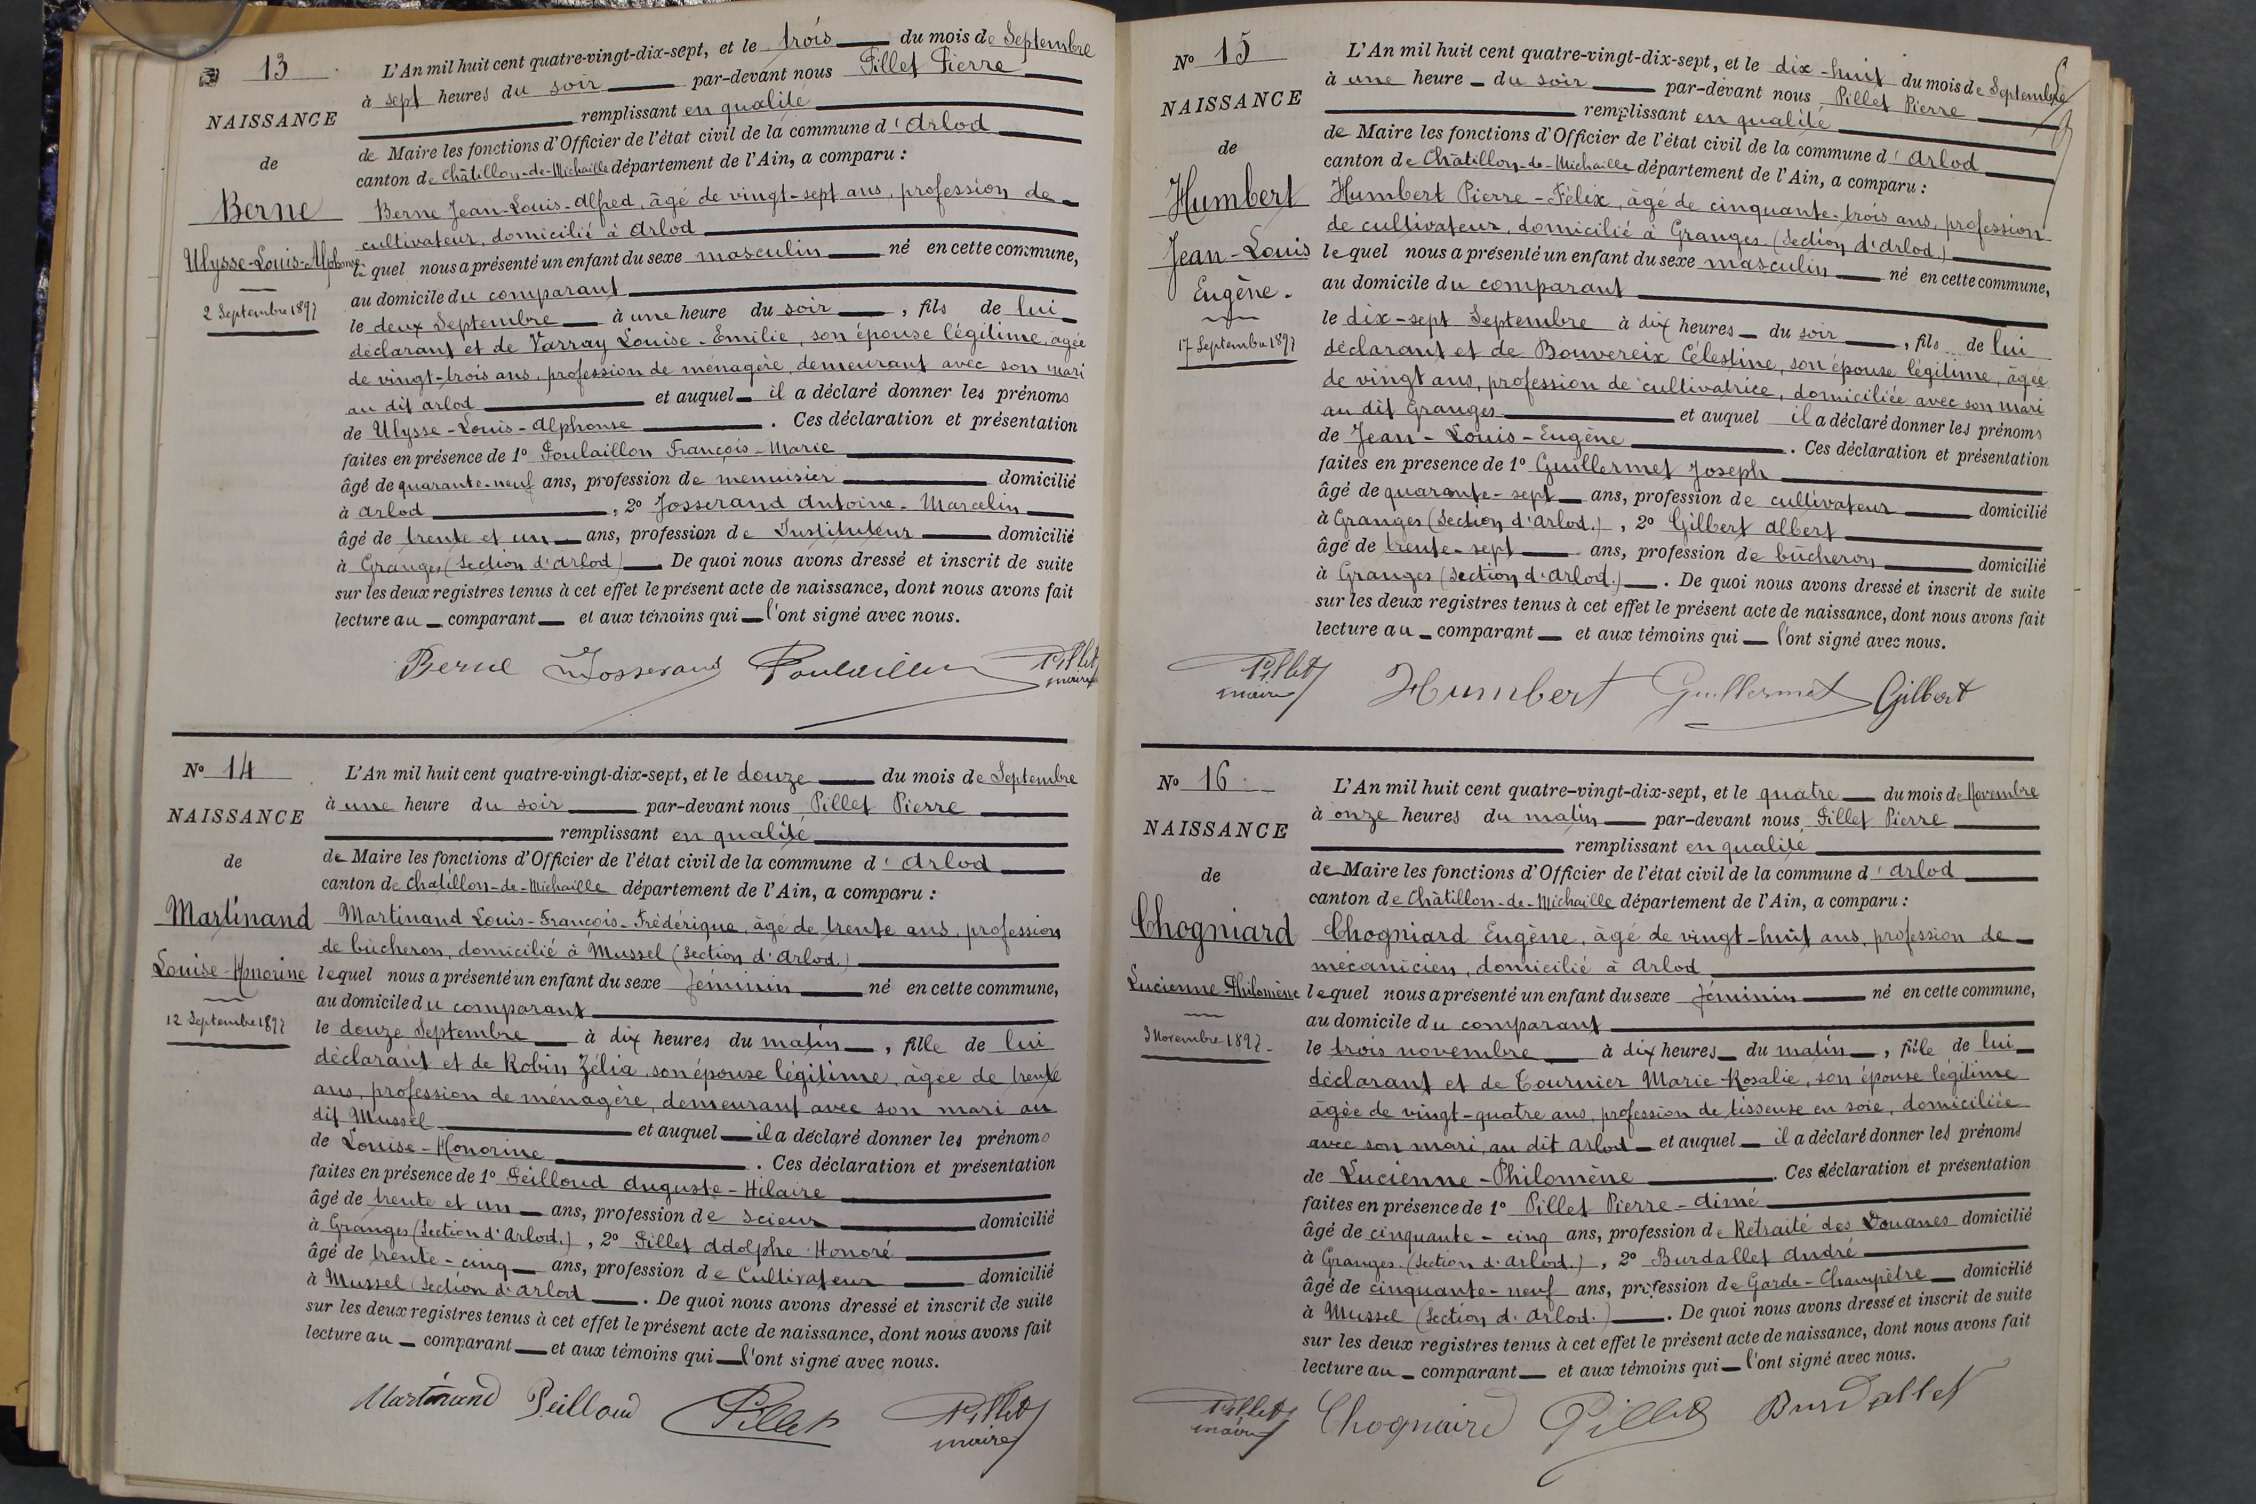 13
NAISSANCE
de
Berne
Ulysse-Louis-Alphonse
2 Septembre 1897
L'An mil huit cent quatre-vingt-dix-sept, et le trois du mois de Septembre
à sept heures du soir par-devant nous Pillet Pierre
remplissant en qualité
de Maire les fonctions d'Officier de l'état civil de la commune d'Arlod
canton de Châtillon-de-Michaille département de l'Ain, a comparu :
Berne Jean-Louis-Alfred, âgé de vingt-sept ans, profession de
cultivateur, domicilié à Arlod
lequel nous a présenté un enfant du sexe masculin né en cette commune,
au domicile du comparant
le deux Septembre à une heure du soir, fils de lui
déclarant et de Varray Louise-Emilie, son épouse légitime, âgée
de vingt-trois ans, profession de ménagère, demeurant avec son mari
au dit Arlod et auquel il a déclaré donner les prénoms
de Ulysse-Louis-Alphonse. Ces déclaration et présentation
faites en présence de 1º Poulaillon François-Marie
âgé de quarante-neuf ans, profession de menuisier domicilié
à Arlod, 2º Josserand Antoine-Marcelin
âgé de trente et un ans, profession de Instituteur domicilié
à Granges (Section d'Arlod). De quoi nous avons dressé et inscrit de suite
sur les deux registres tenus à cet effet le présent acte de naissance, dont nous avons fait
lecture au comparant et aux témoins qui l'ont signé avec nous.
Berne Josserand Poulaillon Pillet
maire
Nº 14
NAISSANCE
de
Martinand
Louise-Honorine
12 Septembre 1897
L'An mil huit cent quatre-vingt-dix-sept, et le douze du mois de Septembre
à une heure du soir par-devant nous Pillet Pierre
remplissant en qualité
de Maire les fonctions d'Officier de l'état civil de la commune d'Arlod
canton de Chatillon-de-Michaille département de l'Ain, a comparu :
Martinand Louis-François-Frédérique, âgé de trente ans, profession
de bûcheron, domicilié à Mussel (Section d'Arlod.)
lequel nous a présenté un enfant du sexe féminin né en cette commune,
au domicile du comparant
le douze Septembre à dix heures du matin, fille de lui
déclarant et de Robin Zélia, son épouse légitime, âgée de trente
ans, profession de ménagère, demeurant avec son mari au
dit Mussel et auquel il a déclaré donner les prénoms
de Louise-Honorine. Ces déclaration et présentation
faites en présence de 1º Peilloud Auguste-Hilaire
âgé de trente et un ans, profession de scieur domicilié
à Granges (Section d'Arlod.), 2º Pillet Adolphe Honoré
âgé de trente-cinq ans, profession de Cultivateur domicilié
à Mussel (Section d'Arlod. De quoi nous avons dressé et inscrit de suite
sur les deux registres tenus à cet effet le présent acte de naissance, dont nous avons fait
lecture au comparant et aux témoins qui l'ont signé avec nous.
Martinand Peilloud Pillet Pillet
maire
Nº 15
NAISSANCE
de
Humbert
Jean-Louis
Eugène.
17 Septembre 1897
L'An mil huit cent quatre-vingt-dix-sept, et le dix-huit du mois de Septembre
à une heure du soir par-devant nous Pillet Pierre
remplissant en qualité
de Maire les fonctions d'Officier de l'état civil de la commune d'Arlod
canton de Châtillon-de-Michaille département de l'Ain, a comparu :
Humbert Pierre-Félix, âgé de cinquante-trois ans, profession
de cultivateur, domicilié à Granges (Section d'Arlod.)
lequel nous a présenté un enfant du sexe masculin né en cette commune,
au domicile du comparant
le dix-sept Septembre à dix heures du soir, fils de lui
déclarant et de Bouvereix Célestine, son épouse légitime, âgée
de vingt ans, profession de cultivatrice, domiciliée avec son mari
au dit Granges et auquel il a déclaré donner les prénoms
de Jean-Louis-Eugène. Ces déclaration et présentation
faites en presence de 1º Guillermet Joseph
âgé de quarante-sept ans, profession de cultivateur domicilié
à Granges (Section d'Arlod.), 2º Gilbert Albert
âgé de trente-sept ans, profession de bûcheron domicilié
à Granges (Section d'Arlod.). De quoi nous avons dressé et inscrit de suite
sur les deux registres tenus à cet effet le présent acte de naissance, dont nous avons fait
lecture au comparant et aux témoins qui l'ont signé avec nous.
Pillet Humbert Guillermet Gilbert
maire
Nº 16
NAISSANCE
de
Chogniard
Lucienne-Philomène
3 Novembre 1897
L'An mil huit cent quatre-vingt-dix-sept, et le quatre du mois de Novembre
à onze heures du matin par-devant nous Pillet Pierre
remplissant en qualité
de Maire les fonctions d'Officier de l'état civil de la commune d'Arlod
canton de Châtillon-de-Michaille département de l'Ain, a comparu :
Chogniard Eugène, âgé de vingt-huit ans, profession de
mécanicien, domicilié à Arlod
lequel nous a présenté un enfant du sexe féminin né en cette commune,
au domicile du comparant
le trois novembre à dix heures du matin, fille de lui
déclarant et de Tournier Marie-Rosalie, son épouse légitime
âgée de vingt-quatre ans, profession de tisseuse en soie, domiciliée
avec son mari, au dit Arlod et auquel il a déclaré donner les prénoms
de Lucienne-Philomène. Ces déclaration et présentation
faites en présence de 1º Pillet Pierre-Aimé
âgé de cinquante-cinq ans, profession de Retraité des Douanes domicilié
à Granges (Section d'Arlod.), 2º Burdallet André
âgé de cinquante-neuf ans, profession de Garde-Champêtre domicilié
à Mussel (Section d'Arlod.). De quoi nous avons dressé et inscrit de suite
sur les deux registres tenus à cet effet le présent acte de naissance, dont nous avons fait
lecture au comparant et aux témoins qui l'ont signé avec nous.
Pillet Chogniard Pillet Burdallet
maire